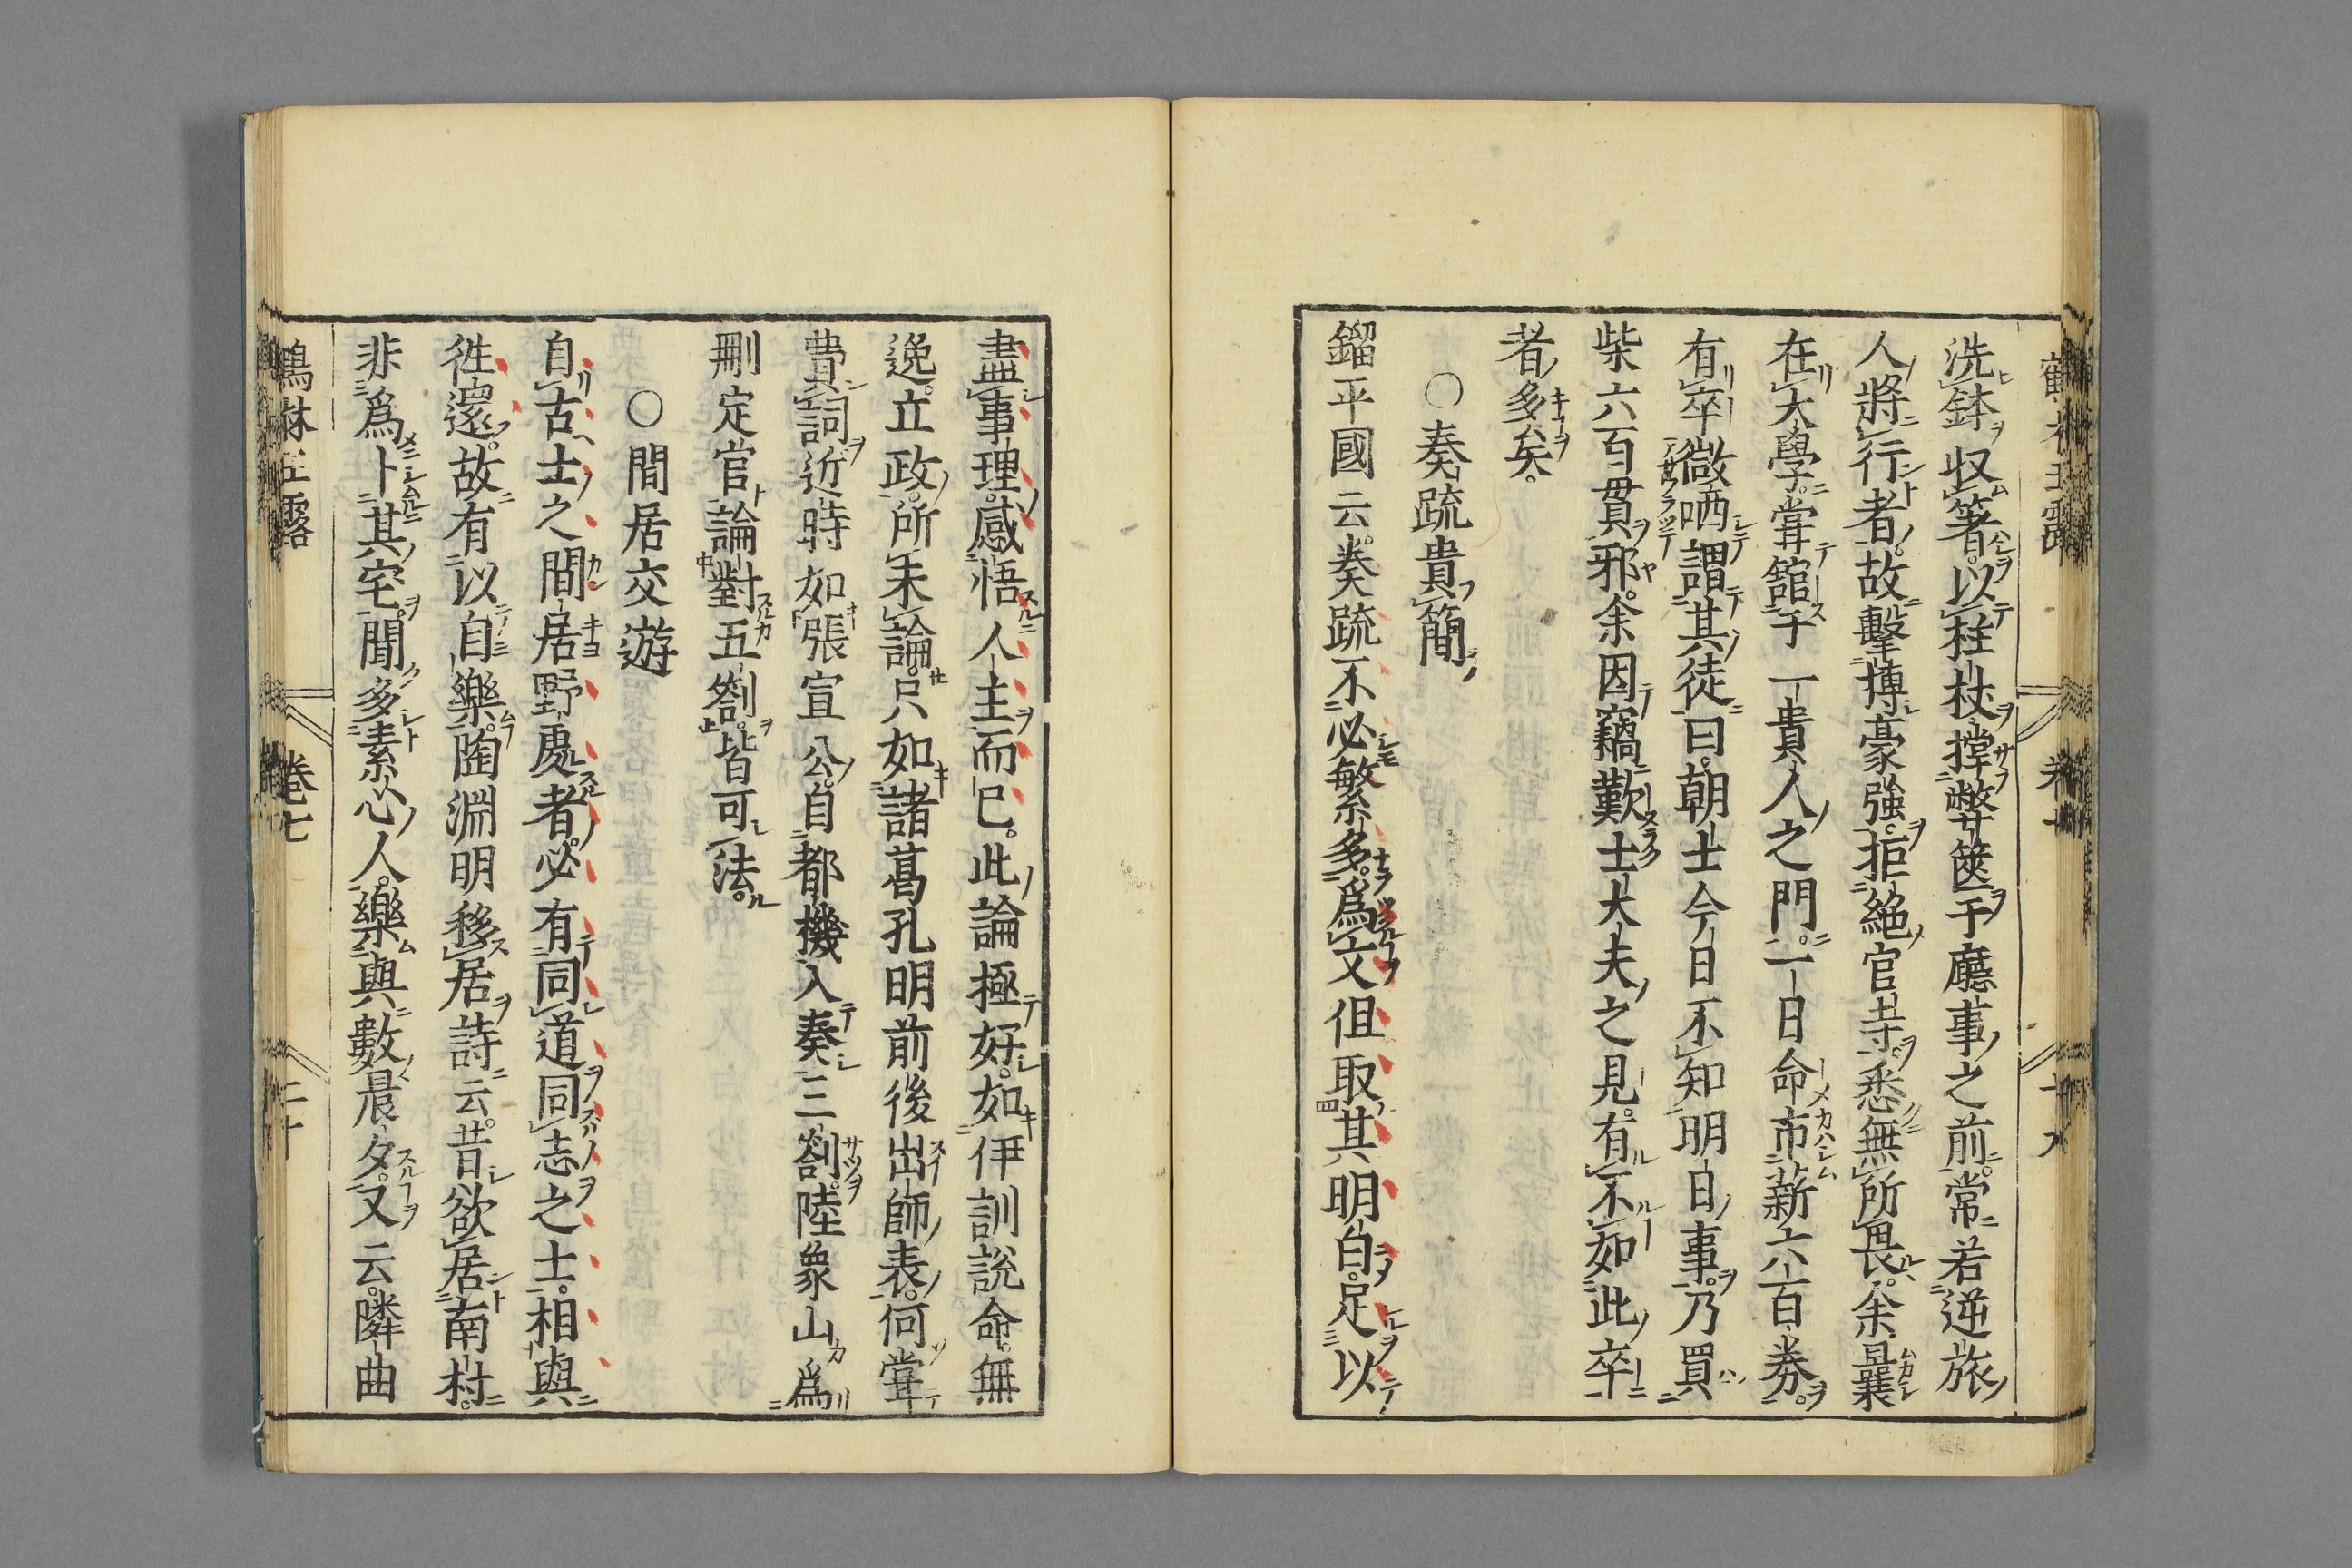 洗鉢収箸以拄杖撑弊篋于廳事之前常若逆旅
人將行者故擊摶豪強拒絶官寺悉無所畏余曩
在大學甞舘于一貴人之門一日命市薪六百券
有卒微哂謂其徒曰朝士今日不知明日事乃買
柴六百貫邪余因竊歎士大夫之見有不如此卒
者多矣
○奏疏貴簡
鎦平國云奏疏不必繁多爲文但取其明白足以
盡事理感悟人主而已此論極好如伊訓說命無
逸立政所未論只如諸葛孔明前後出師表何甞
費詞近時如張宣公自都機入奏三劄陸象山爲
刪定官論對五劄皆可法
○間居交遊
自古士之間居野處者必有同道同志之士相與
徃還故有以自樂陶淵明移居詩云昔欲居南村
非爲卜其宅聞多素心人樂與數晨夕又云隣曲
鶴林玉露 卷七 二十